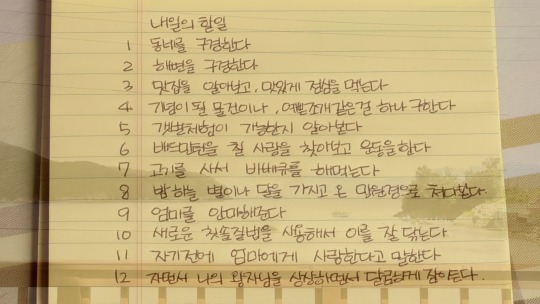 내일의 할일
1 동네를 구경한다
2 해변을 구경한다
3 맛집을 알아보고, 맛있게 점심을 먹는다
4 기념이 될 물건이나, 예쁜조개같은걸 하나 구한다
5 갯벌체험이 가능한지 알아본다
6 배드민턴을 칠 사람을 찾아보고 운동을 한다
7 고기를 사서 바베큐를 해먹는다
8 밤하늘 별이나 달을 가지고 온 망원경으로 쳐다본다.
9 엄마를 안마해준다
10 새로운 칫솔질법을 사용해서 이를 잘 닦는다
11 자기전에 엄마에게 사랑한다고 말한다
12 자면서 나의 왕자님을 상상하면서 달콤하게 잠이든다.